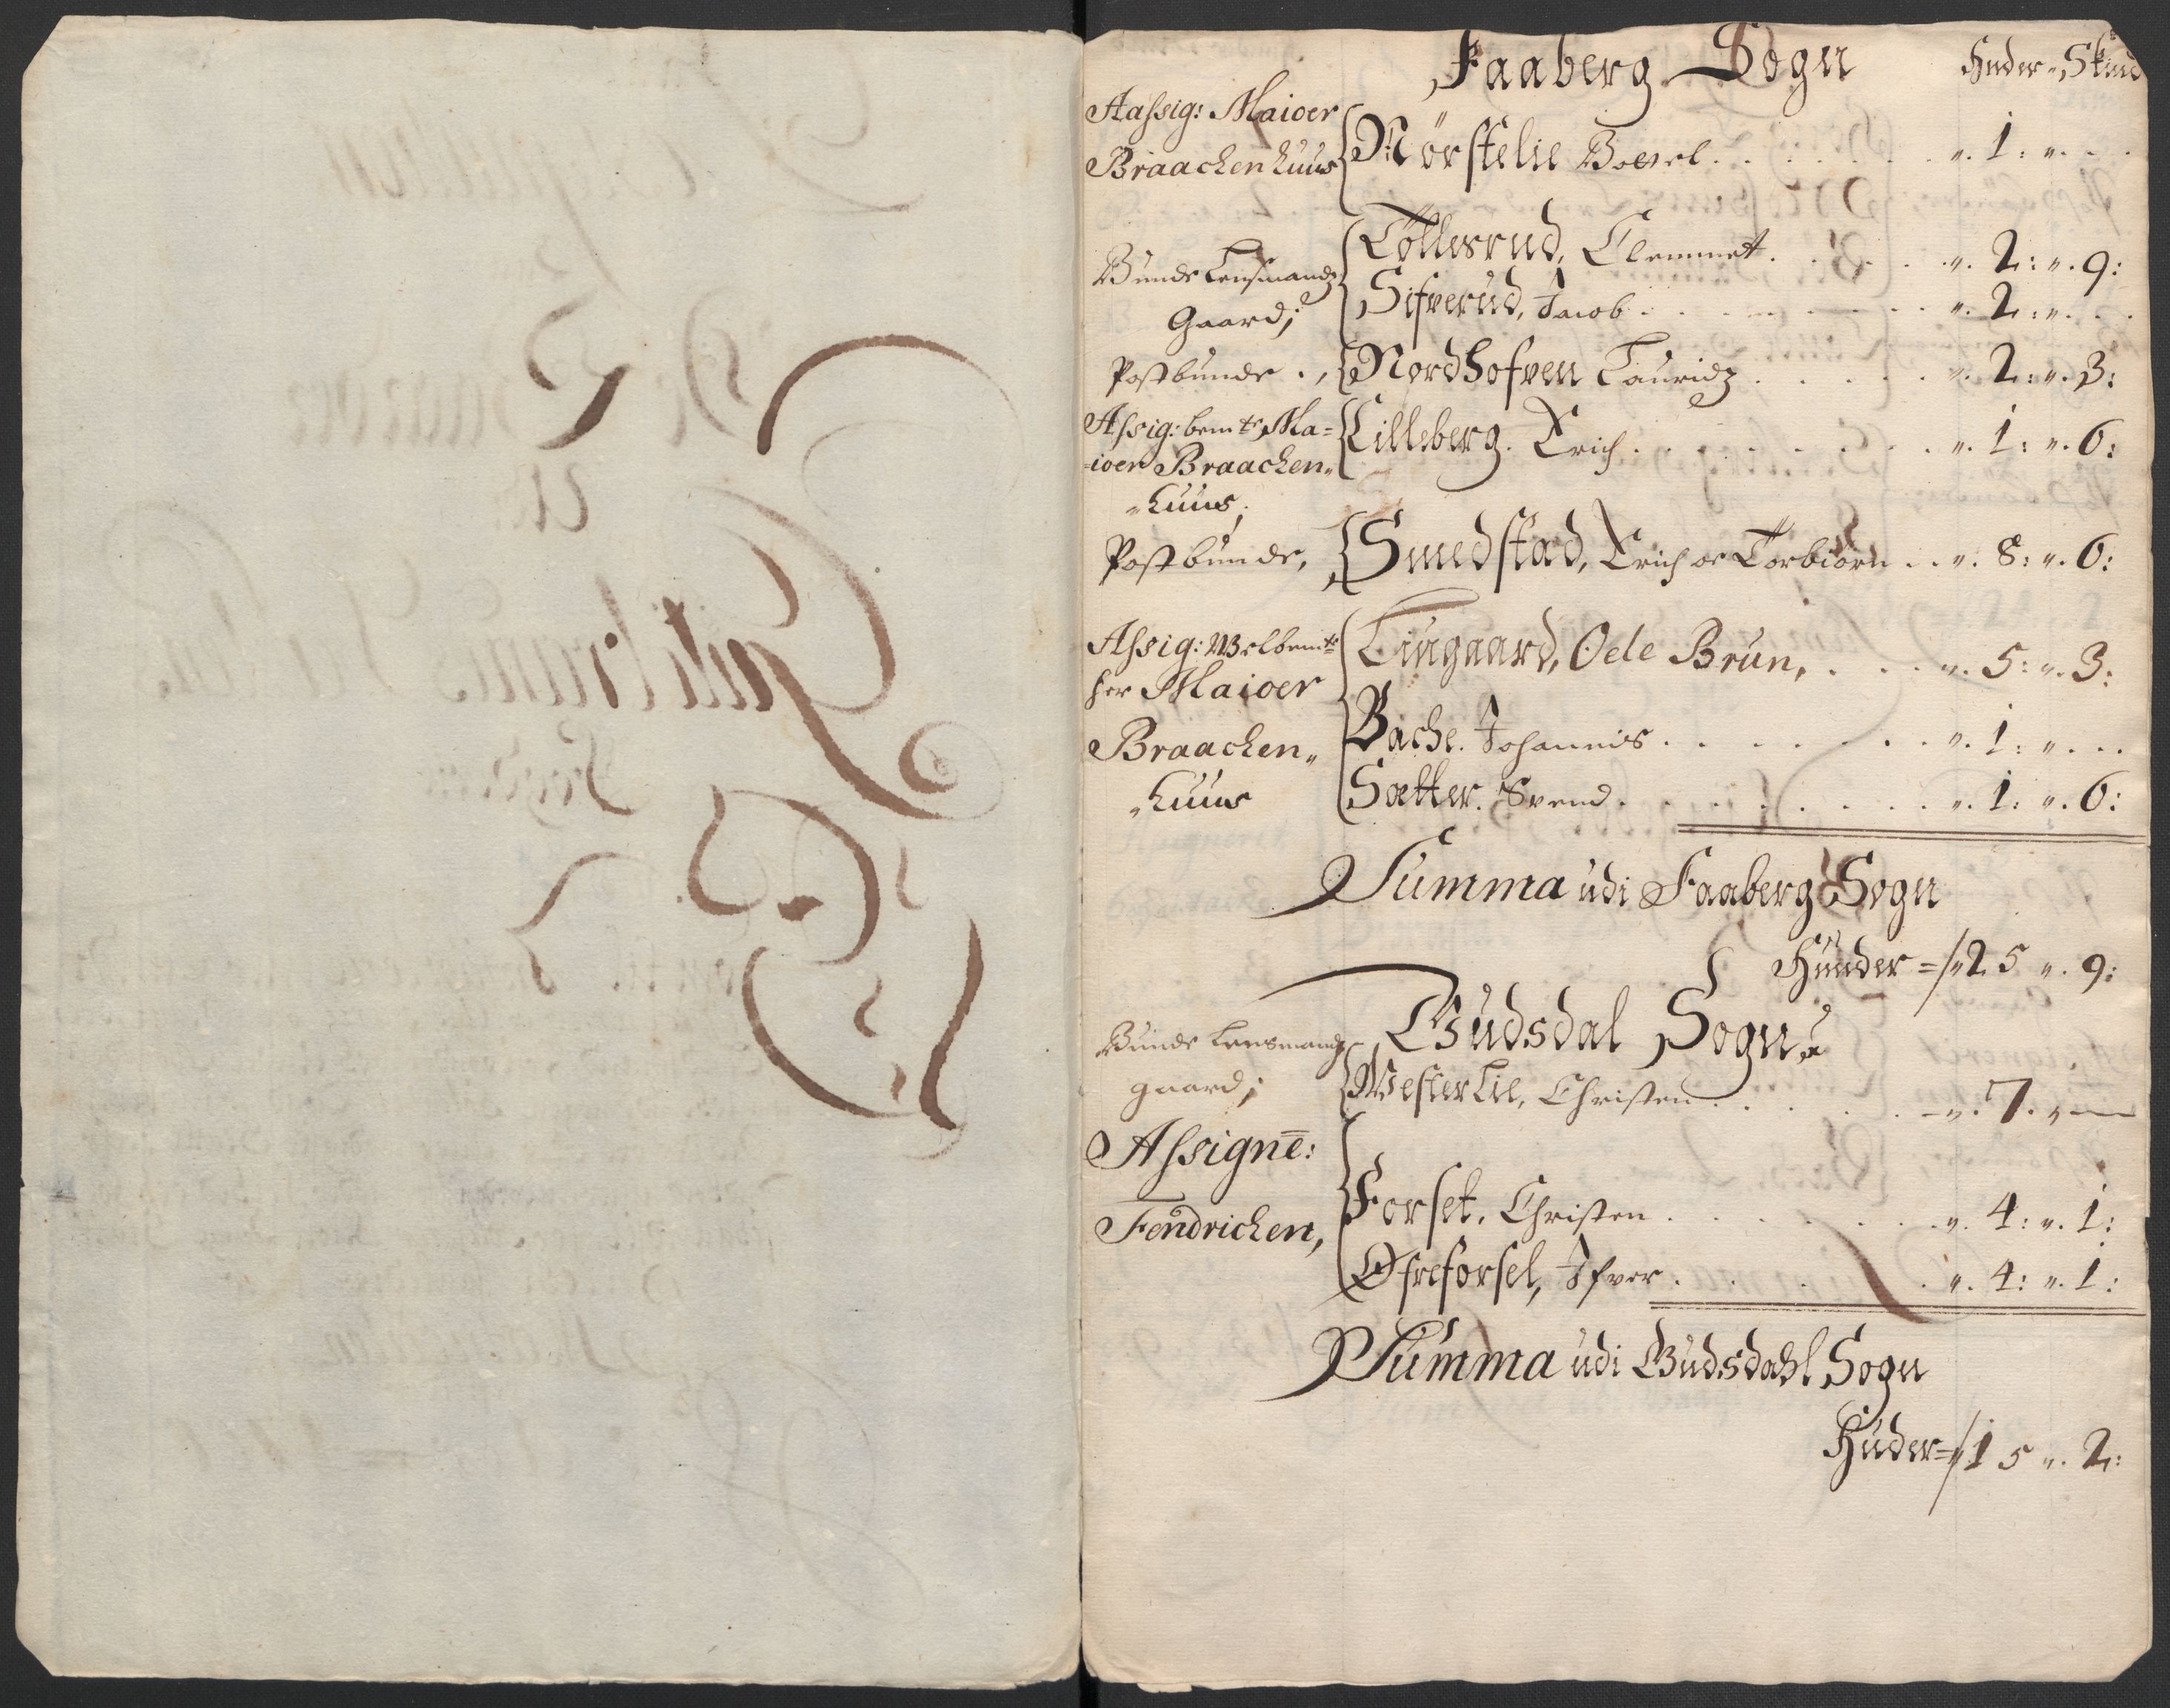 Faaberg Sogn
Huder „ Skind
Aassig: Maioer
Braachenhuus { Nörstelie Boerel . . . . „. 1: „. - -
Bunde Lensmandz
Gaard; { Töllesrud, Clemmet . . . „. 2: „. 9:
Sifverud, Jacob . . . . „. 2: „. . .
Postbunde . , { Nordhofven Lauridz . . . . „. 2: „. 3:
Assig: bemte Ma=
ioer Braachen„
„huus, { Lilleberg. Erich . . . . „. 1: „. 6:
Postbunde, { Smedstad, Erich oc Torbiörn . . „. 8: „. 6:
Assig: Welbemte
her Maioer
Braachen„
„huus { Lingaard, Ole Brun, . . . „. 5: „. 3:
Bache. Johannis . . . . „. 1: „. . .
Sætter. Svend . . . . „. 1: „. 6:
Summa udi Faaberg Sogn
Huuder =/„25 „. 9:
Gudsdal Sogn
Bunde Lensmandz
gaard; { Vesler Lie, Christen . . . . „. 7. „
Assigne:
Fendrichen, { Forset. Christen . . . . „. 4: „. 1:
Øfreforset, Ifver . . . . „. 4: „. 1:
Summa udi Gudsdahl Sogn
Huder=/„15 „. 2: